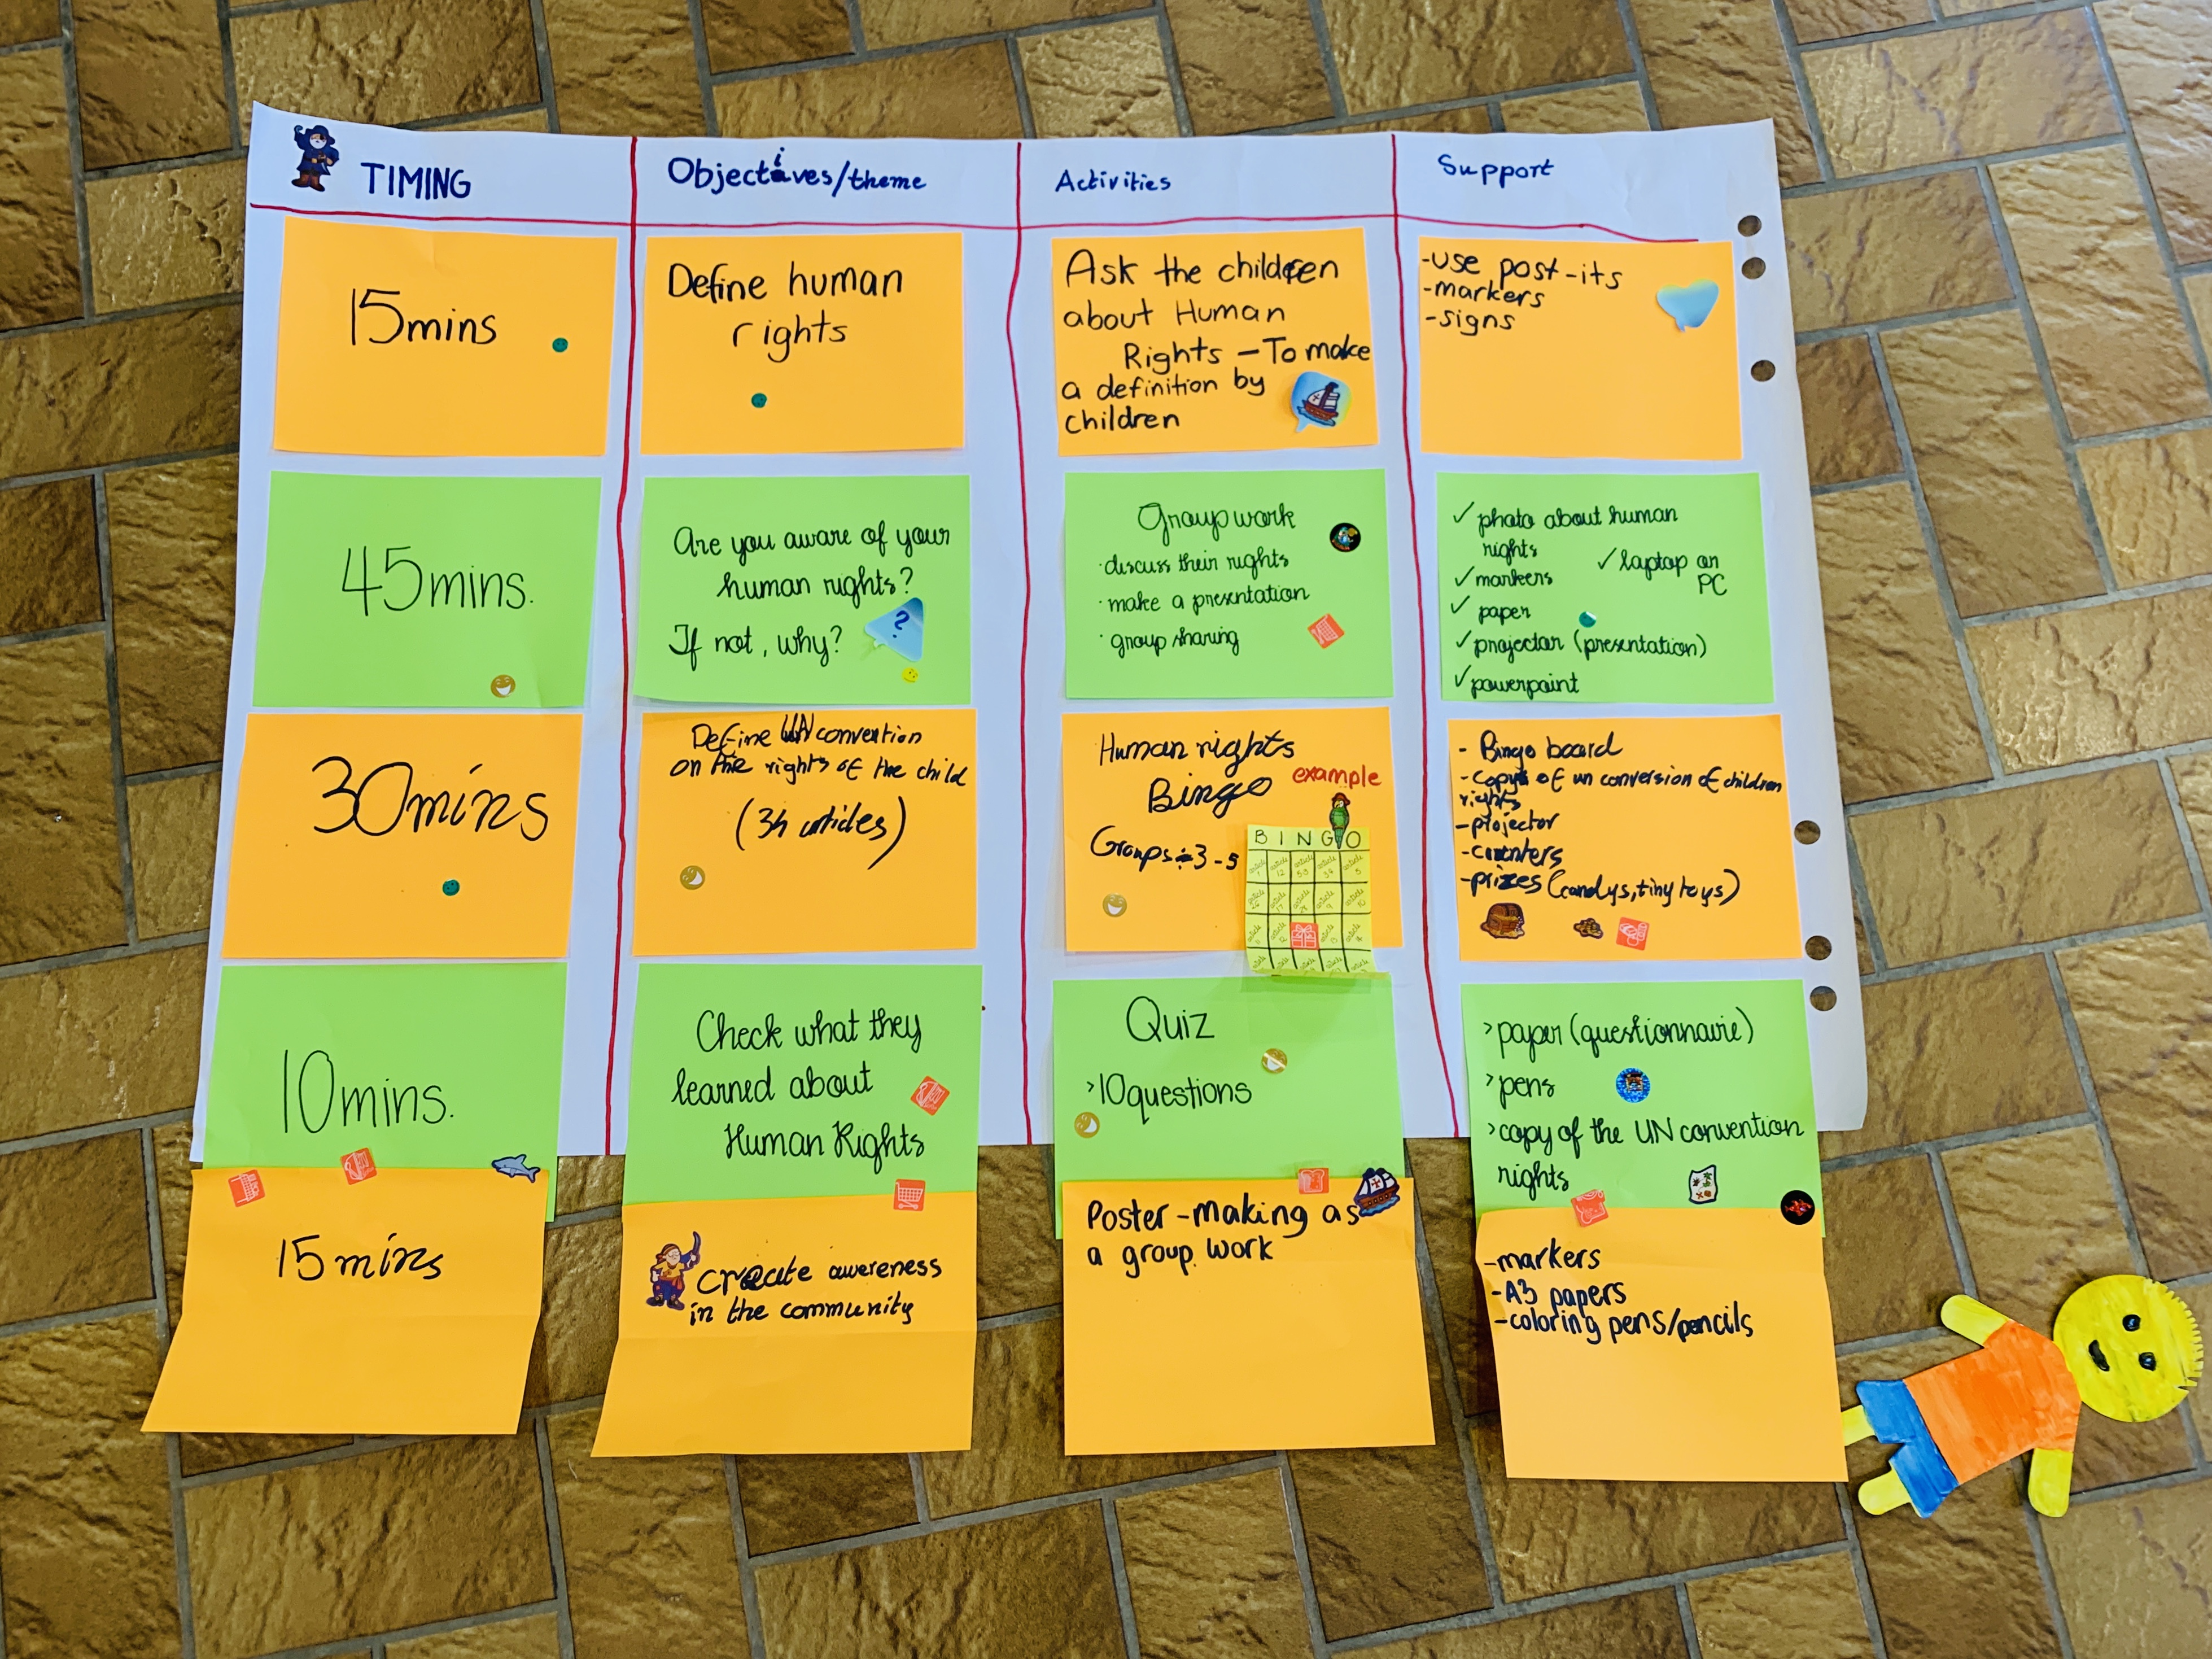 TIMING
Objectives/theme
Activities
Support
15mins
Define human
rights
Ask the children
about Human
Rights - To make
a definition by
children
-use post-its
-markers
-signs
45mins.
Are you aware of your
human rights?
If not, why?
?
Group work
· discuss their rights
· make a presentation
· group sharing
✓ photo about human
rights
✓ laptop or
PC
✓ markers
✓ paper
✓ projector (presentation)
✓ powerpoint
30mins
Define UN convention
on the rights of the child
(34 articles)
Human rights
Bingo
example
Groups ÷ 3-5
BINGO
- Bingo board
- copys of un conversion of children
rights
- projector
- counters
- prizes (candys, tiny toys)
10mins.
Check what they
learned about
Human Rights
Quiz
>10questions
>paper (questionnaire)
>pens
>copy of the UN convention
rights
15 mins
create awereness
in the community
Poster-making as
a group work
-markers
-A3 papers
-coloring pens/pencils